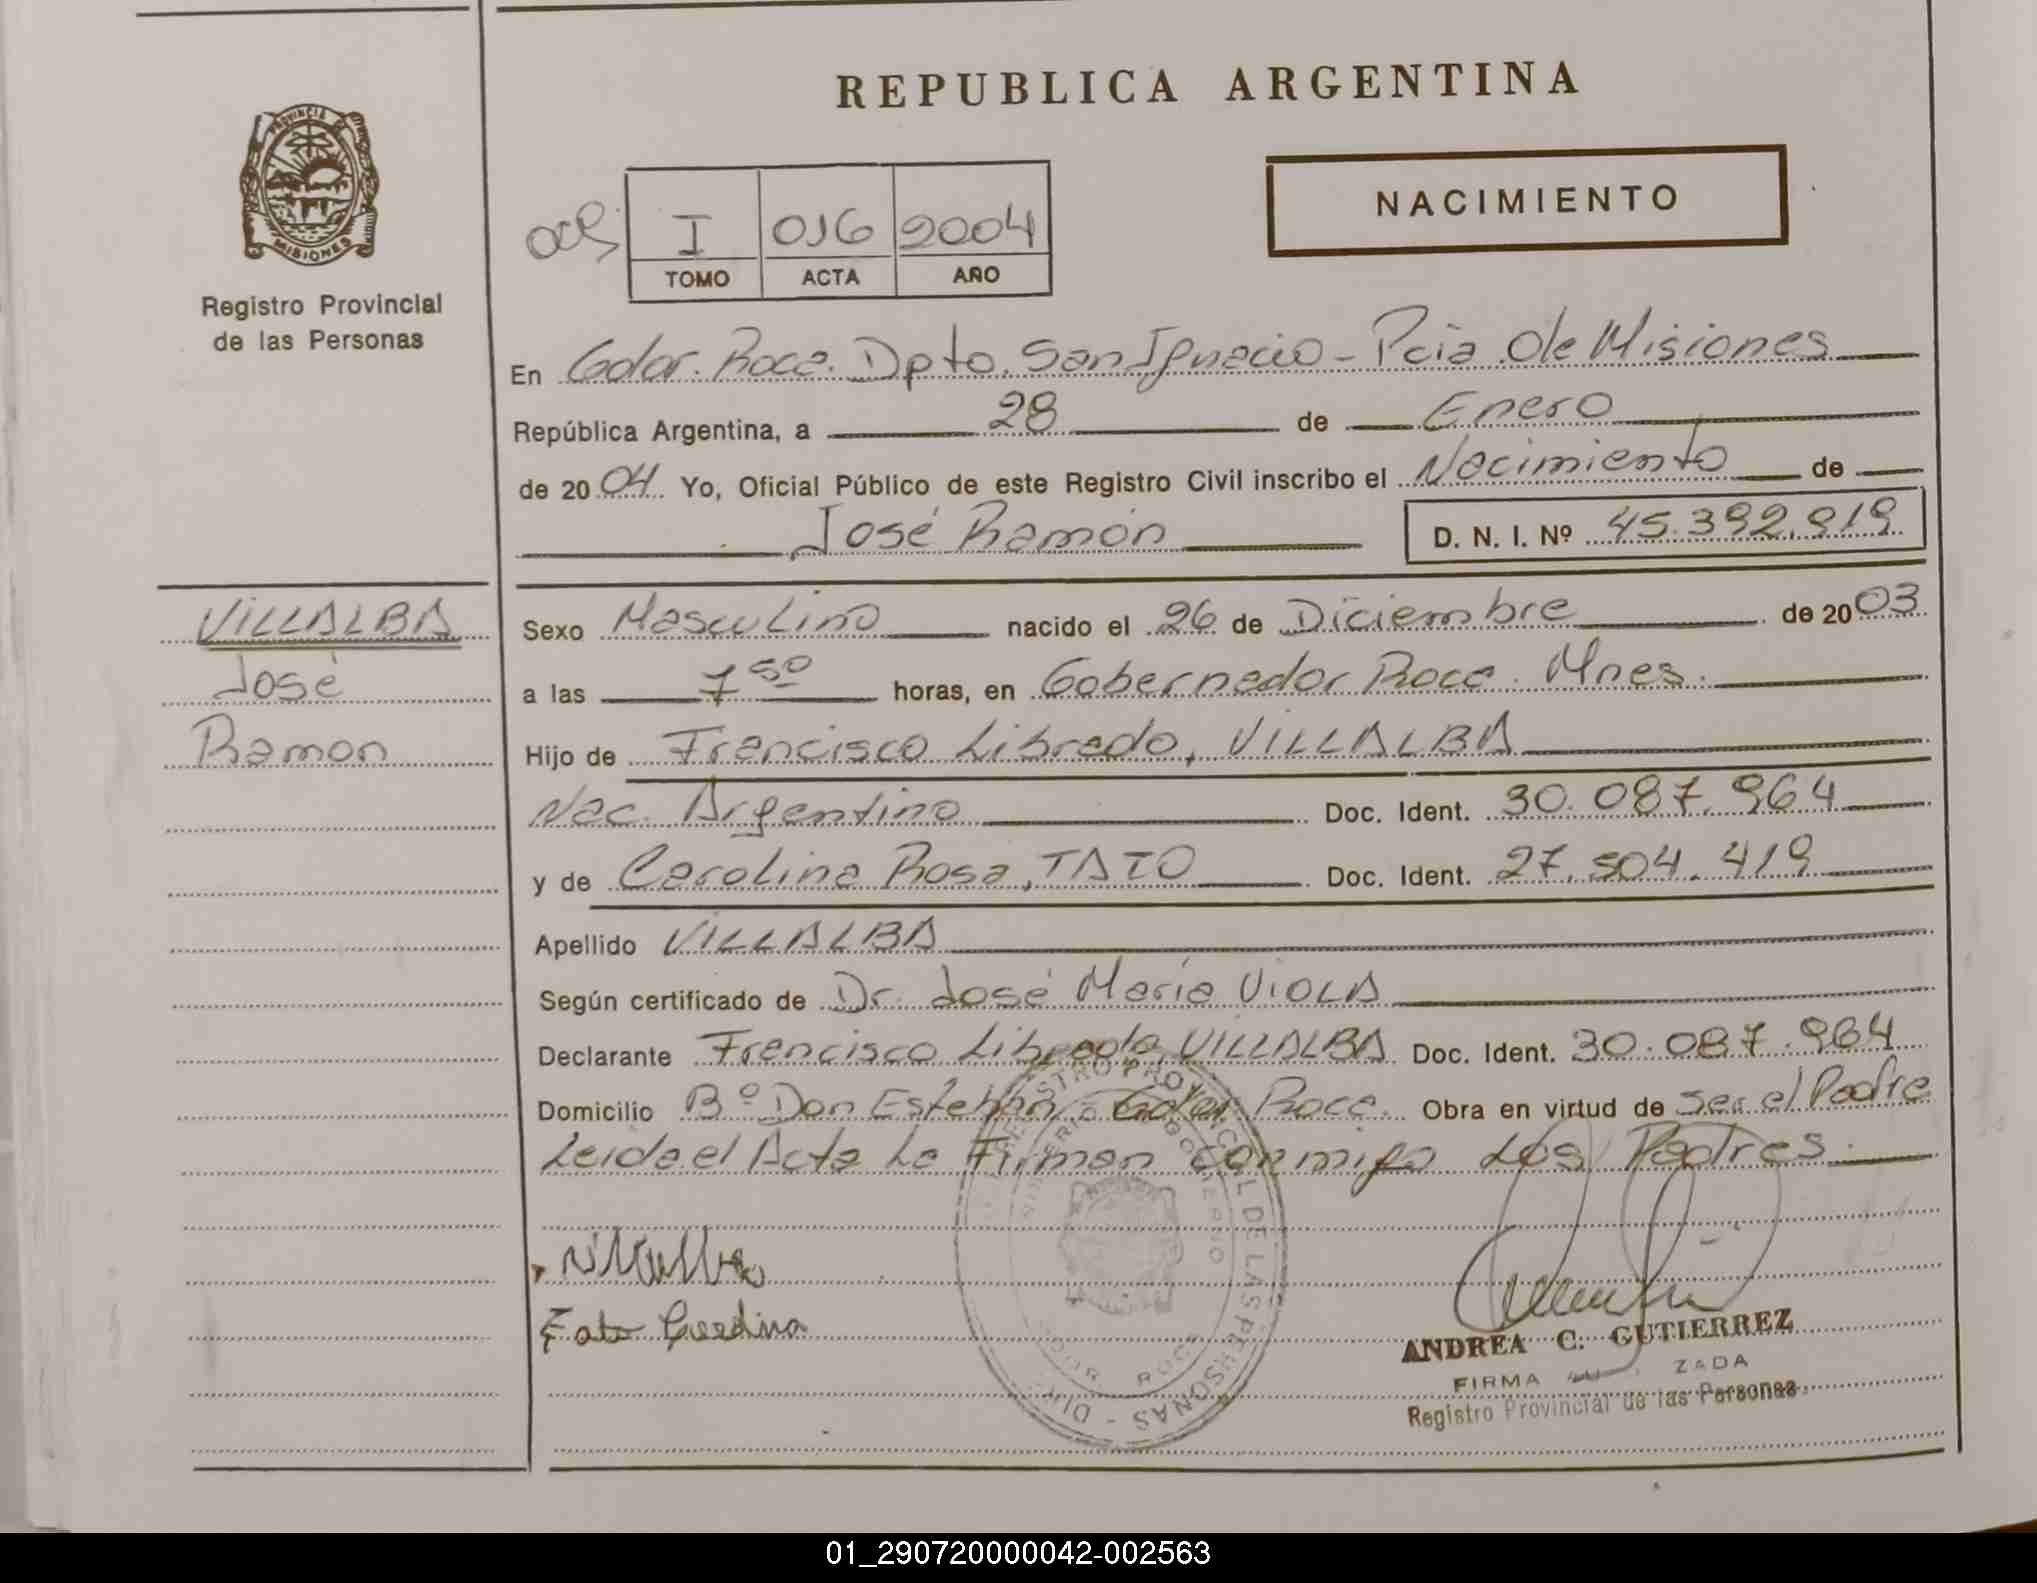 REPUBLICA ARGENTINA
PROVINCIA DE
MISIONES
Registro Provincial
de las Personas
NACIMIENTO
I 016 2004
TOMO ACTA AÑO
En Gdor. Roca. Dpto. San Ignacio - Pcia de Misiones
República Argentina, a 28 de Enero
de 2004 Yo, Oficial Público de este Registro Civil inscribo el Nacimiento de
José Ramón D. N. I. Nº 45.392.919
VILLALBA
José
Ramon
Sexo Masculino nacido el 26 de Diciembre de 2003
a las 7 50 horas, en Gobernador Roca. Mnes.
Hijo de Francisco Librado, VILLALBA
Nac. Argentino Doc. Ident. 30.087.964
y de Carolina Rosa, TATO Doc. Ident. 27.504.419
Apellido VILLALBA
Según certificado de Dr. José María VIOLA
Declarante Francisco Librado VILLALBA Doc. Ident. 30.087.964
Domicilio Bº Don Esteban - Gdor. Roca. Obra en virtud de Ser el Padre
Leida el Acta La Firman conmigo Los Padres.
REGISTRO PROVINCIAL DE LAS PERSONAS
Tato Carolina
ANDREA C. GUTIERREZ
FIRMA ZADA
Registro Provincial de las Personas
01_290720000042-002563